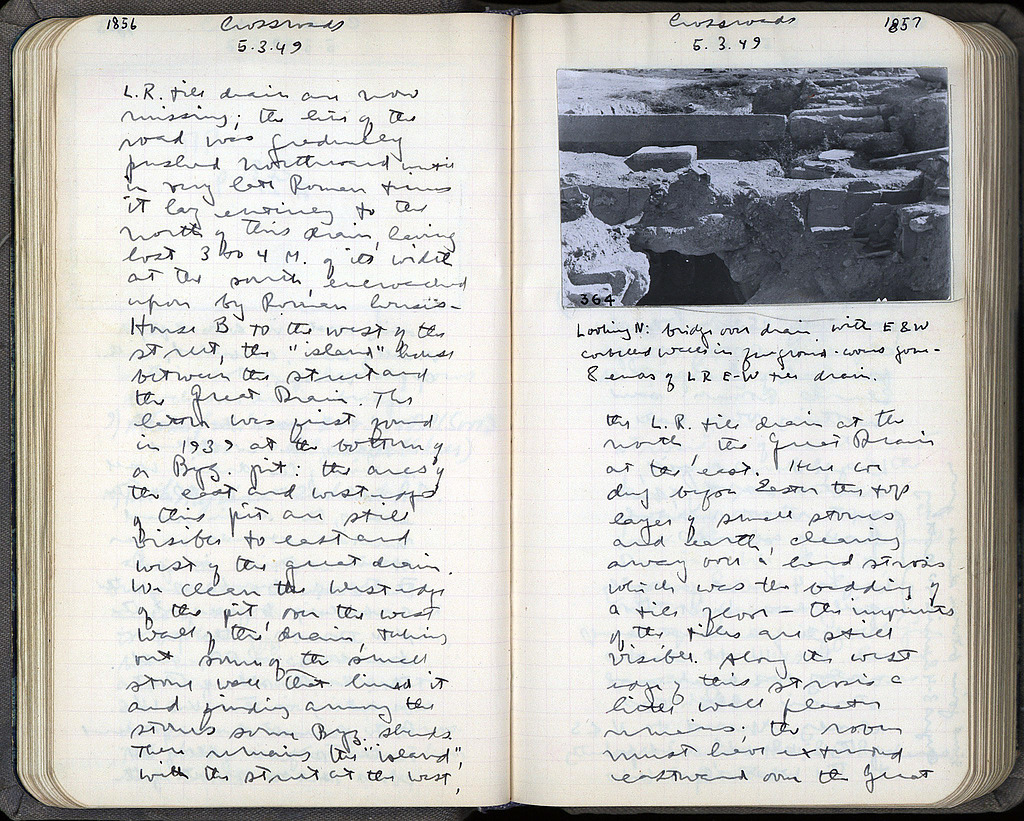 1856
Crossroads
5.3.49
L.R. tile drain are now
missing; the line of the
road was gradually
pushed northward until
in very late Roman times
it lay entirely to the
north of this drain, having
lost 3 to 4 M. of its width
at the south, encroached
upon by Roman houses -
House B to the west of the
street, the "island" house
between the street and
the Great Drain. This
latter was first found
in 1939 at the bottom of
a Byz. pit: the
the east and west edges
of this pit are still
visible to east and
west of the great drain.
We clean the west edge
of the pit, over the west
wall of the drain, taking
out some of the small
stone wall that lined it
and finding among the
stones some Byz. sherds.
There remains the "island",
with the street at the west,
Crossroads
1857
5.3.49
364
Looking N: bridge over drain with E & W
corbelled walls in foreground -
& ends of LR E-W tile drain.
the L.R. tile drain at the
north, the Great Drain
at the east. Here we
dug before Easter the top
layer of small stones
and earth, clearing
away over a hard strosis
which was the bedding of
a tile floor - the imprints
of the tiles are still
visible. Along the west
edge of this strosis a
little wall plaster
remains; the room
must have extended
eastward over the Great